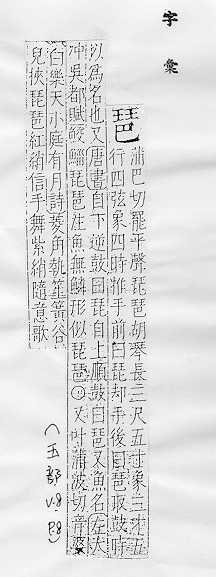 字彙
琶
蒲巴切罷平聲琵琶胡琴長三尺五寸象三才五
行四弦象四時推手前曰琵却手後曰琶取鼓時
以爲名也又唐書自下逆鼓曰琵自上順鼓曰琶又魚名左太
冲吳都賦鮫鯔琵琶注魚無鱗形似琵琶〇又叶蒲波切音婆
白樂天小庭有月詩菱角執笙簧谷
兒挾琵琶紅綃信手舞紫綃隨意歌
(玉部 V.8 P.8)